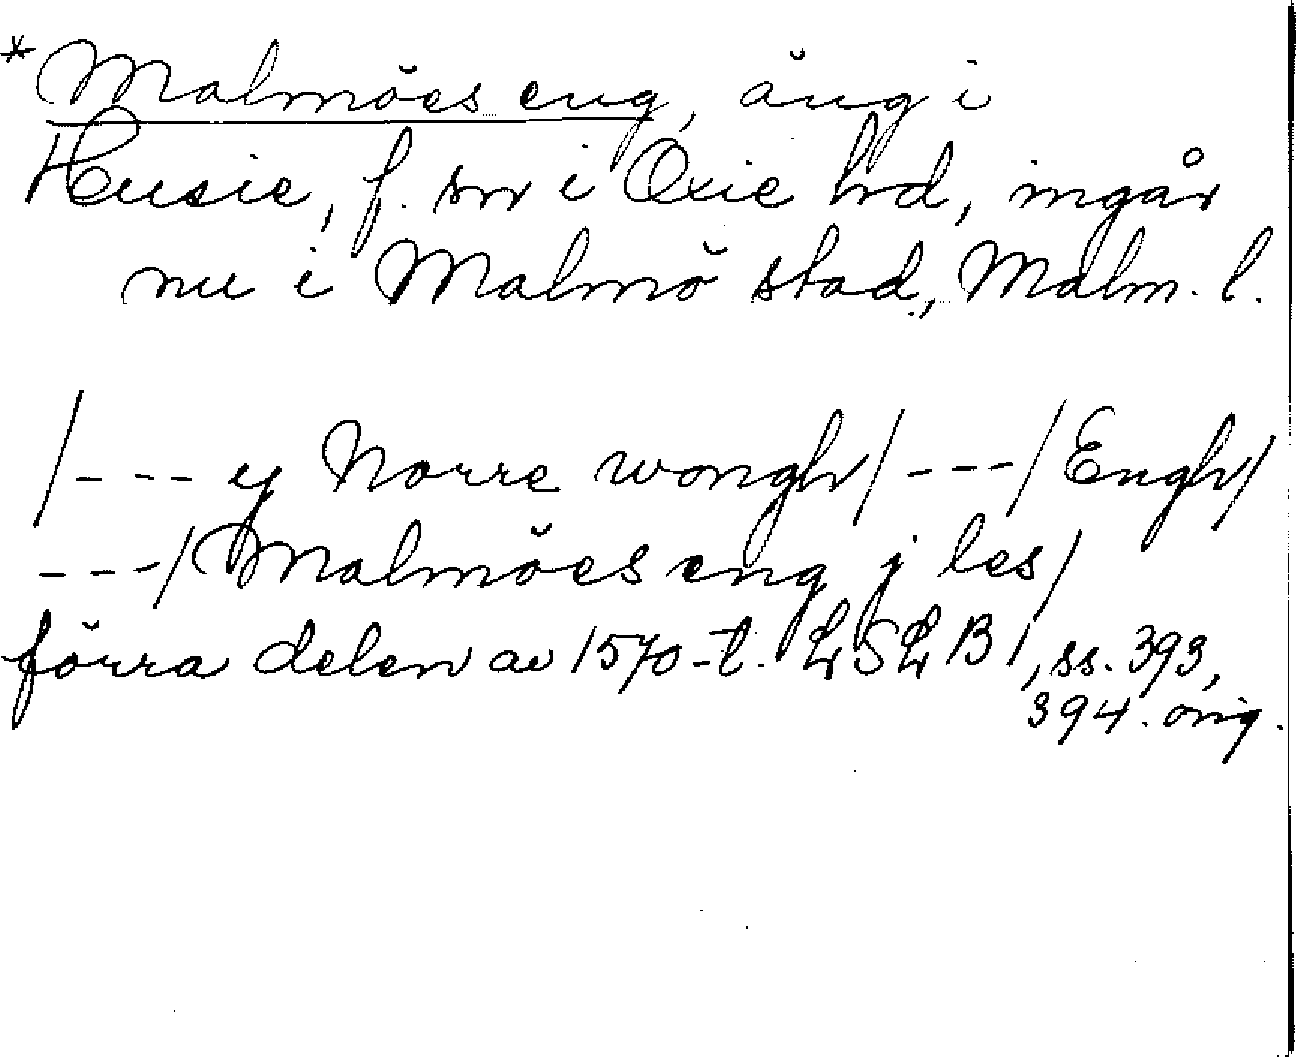 *Malmöes eng, äng i
Husie, f. sn i Oxie hd, ingår
nu i Malmö stad, Malm. l.
/--- y Norre wongh/---/Engh/
---/Malmöes eng j les/
förra delen av 1570-t. LSLB 1, ss. 393,
394. orig.